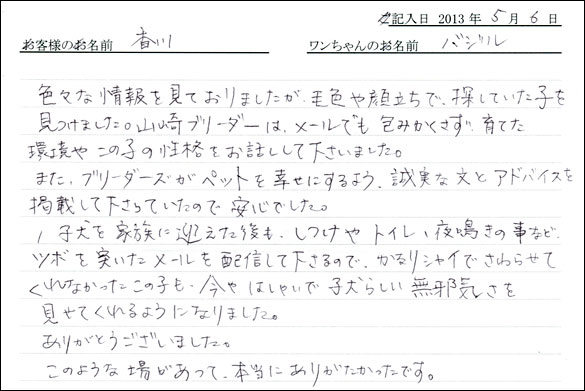 ご記入日 2013 年 5 月 6 日
お客様のお名前 香川 ワンちゃんのお名前 バジル
色々な情報を見ておりましたが、毛色や顔立ちで、探していた子を
見つけました。山崎ブリーダーは、メールでも包みかくさず、育てた
環境やこの子の性格をお話しして下さいました。
また、ブリーダーズがペットを幸せにするよう、誠実な文とアドバイスを
掲載して下さっていたので安心でした。
子犬を家族に迎えた後も、しつけやトイレ、夜鳴きの事など、
ツボを突いたメールを配信して下さるので、かなりシャイでさわらせて
くれなかったこの子も、今やはしゃいで子犬らしい無邪気さを
見せてくれるようになりました。
ありがとうございました。
このような場があって、本当にありがたかったです。